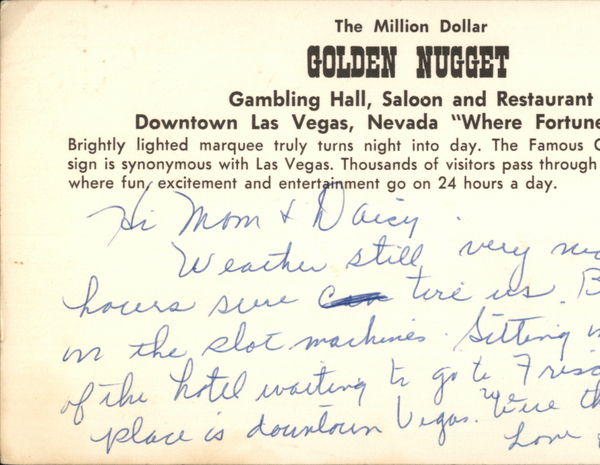 The Million Dollar
GOLDEN NUGGET
Gambling Hall, Saloon and Restaurant
Downtown Las Vegas, Nevada "Where Fortune
Brightly lighted marquee truly turns night into day. The Famous
sign is synonymous with Las Vegas. Thousands of visitors pass through
where fun, excitement and entertainment go on 24 hours a day.
Hi Mom & Daisy
Weather still very
hours sure tire us.
on the slot machines. Sitting
of the hotel waiting to go to
place is downtown Vegas. We're
Love